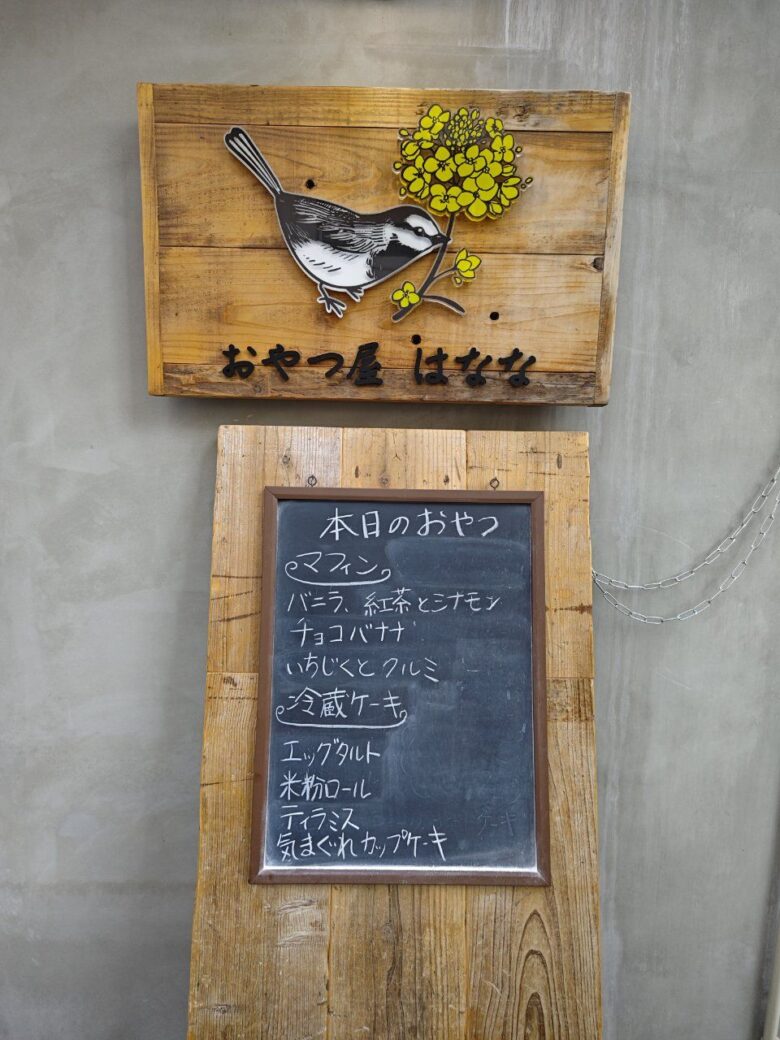 おやつ屋 はなな
本日のおやつ
マフィン
バニラ、紅茶とシナモン
チョコバナナ
いちじくとクルミ
冷蔵ケーキ
エッグタルト
米粉ロール
ティラミス
気まぐれカップケーキ